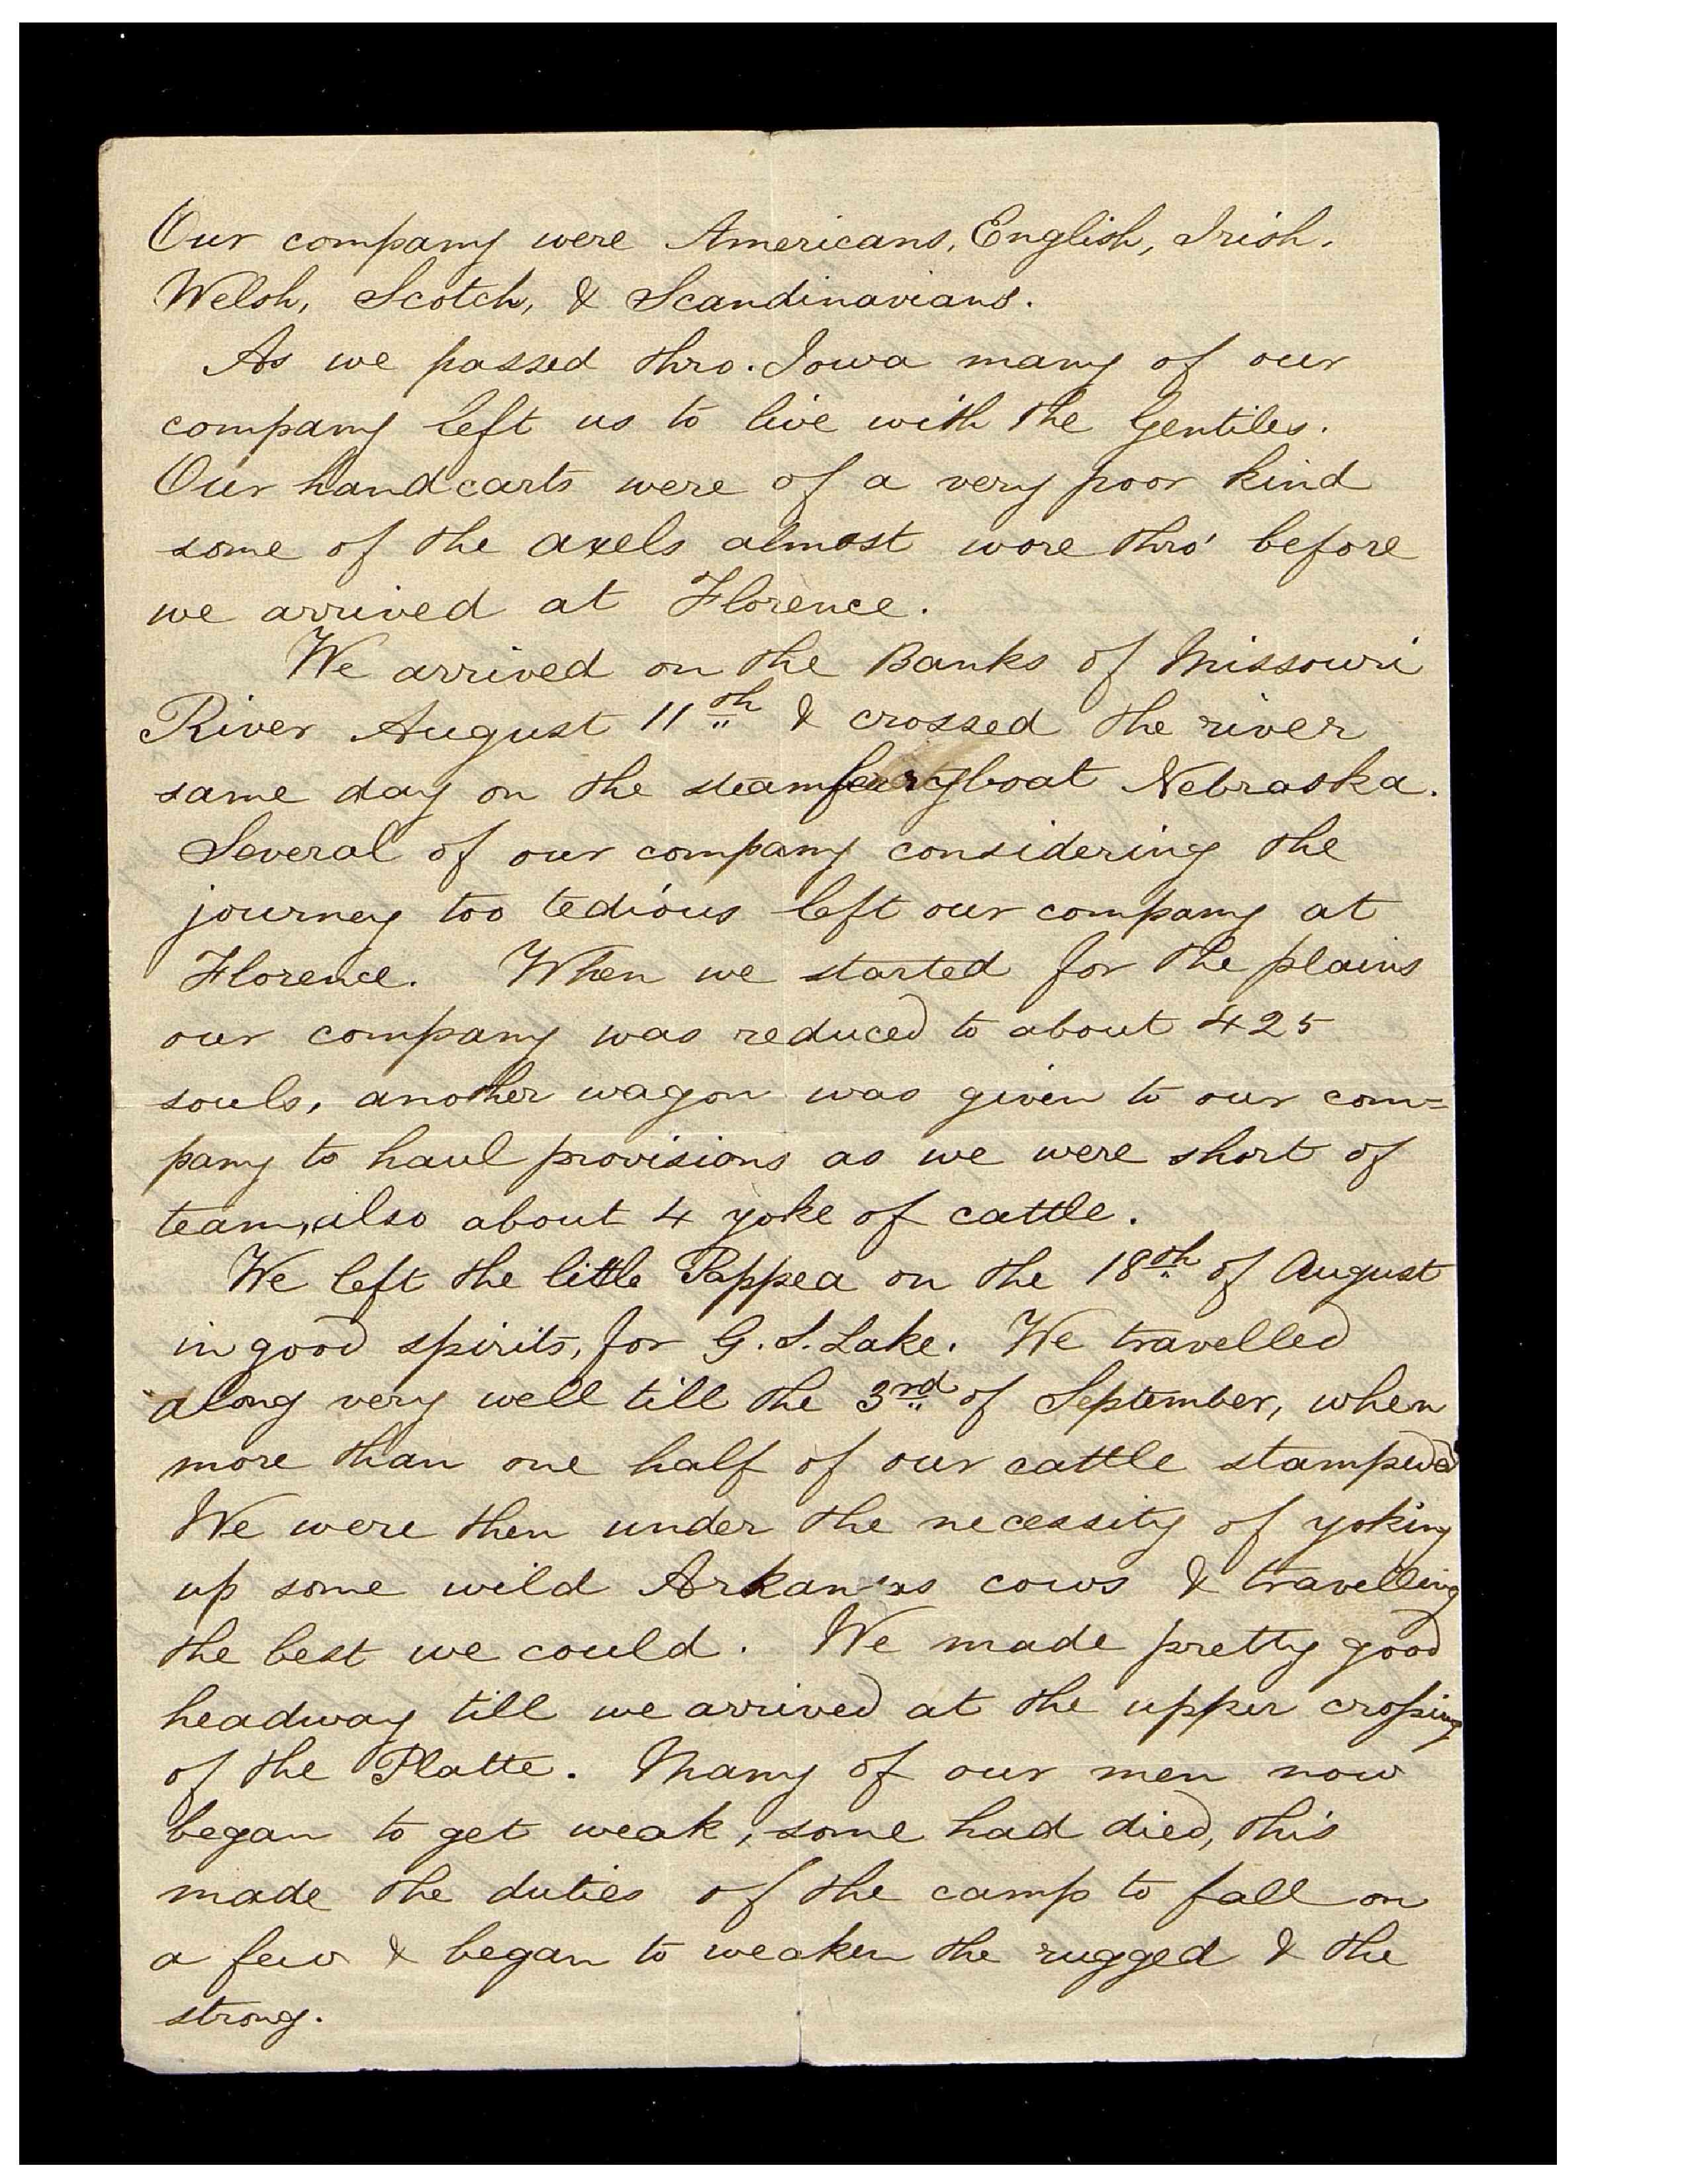 Our company were Americans, English, Irish.
Welsh, Scotch, & Scandinavians.
As we passed thro. Iowa many of our
company left us to live with the Gentiles.
Our handcarts were of a very poor kind
some of the axels almost wore thro' before
we arrived at Florence.
We arrived on the Banks of Missouri
River August 11th & crossed the river
same day on the steamferryboat Nebraska.
Several of our company considering the
journey too tedious left our company at
Florence. When we started for the plains
our company was reduced to about 425
souls, another wagon was given to our com=
pany to haul provisions as we were short of
team, also about 4 yoke of cattle.
We left the little Pappea on the 18th of August
in good spirits, for G. S. Lake. We travelled
along very well till the 3rd of September, when
more than one half of our cattle stampeded
We were then under the necessity of yoking
up some wild Arkansas cows & travelling
the best we could. We made pretty good
headway till we arrived at the upper crossing
of the Platte. Many of our men now
began to get weak, some had died, this
made the duties of the camp to fall on
a few & began to weaken the rugged & the
strong.